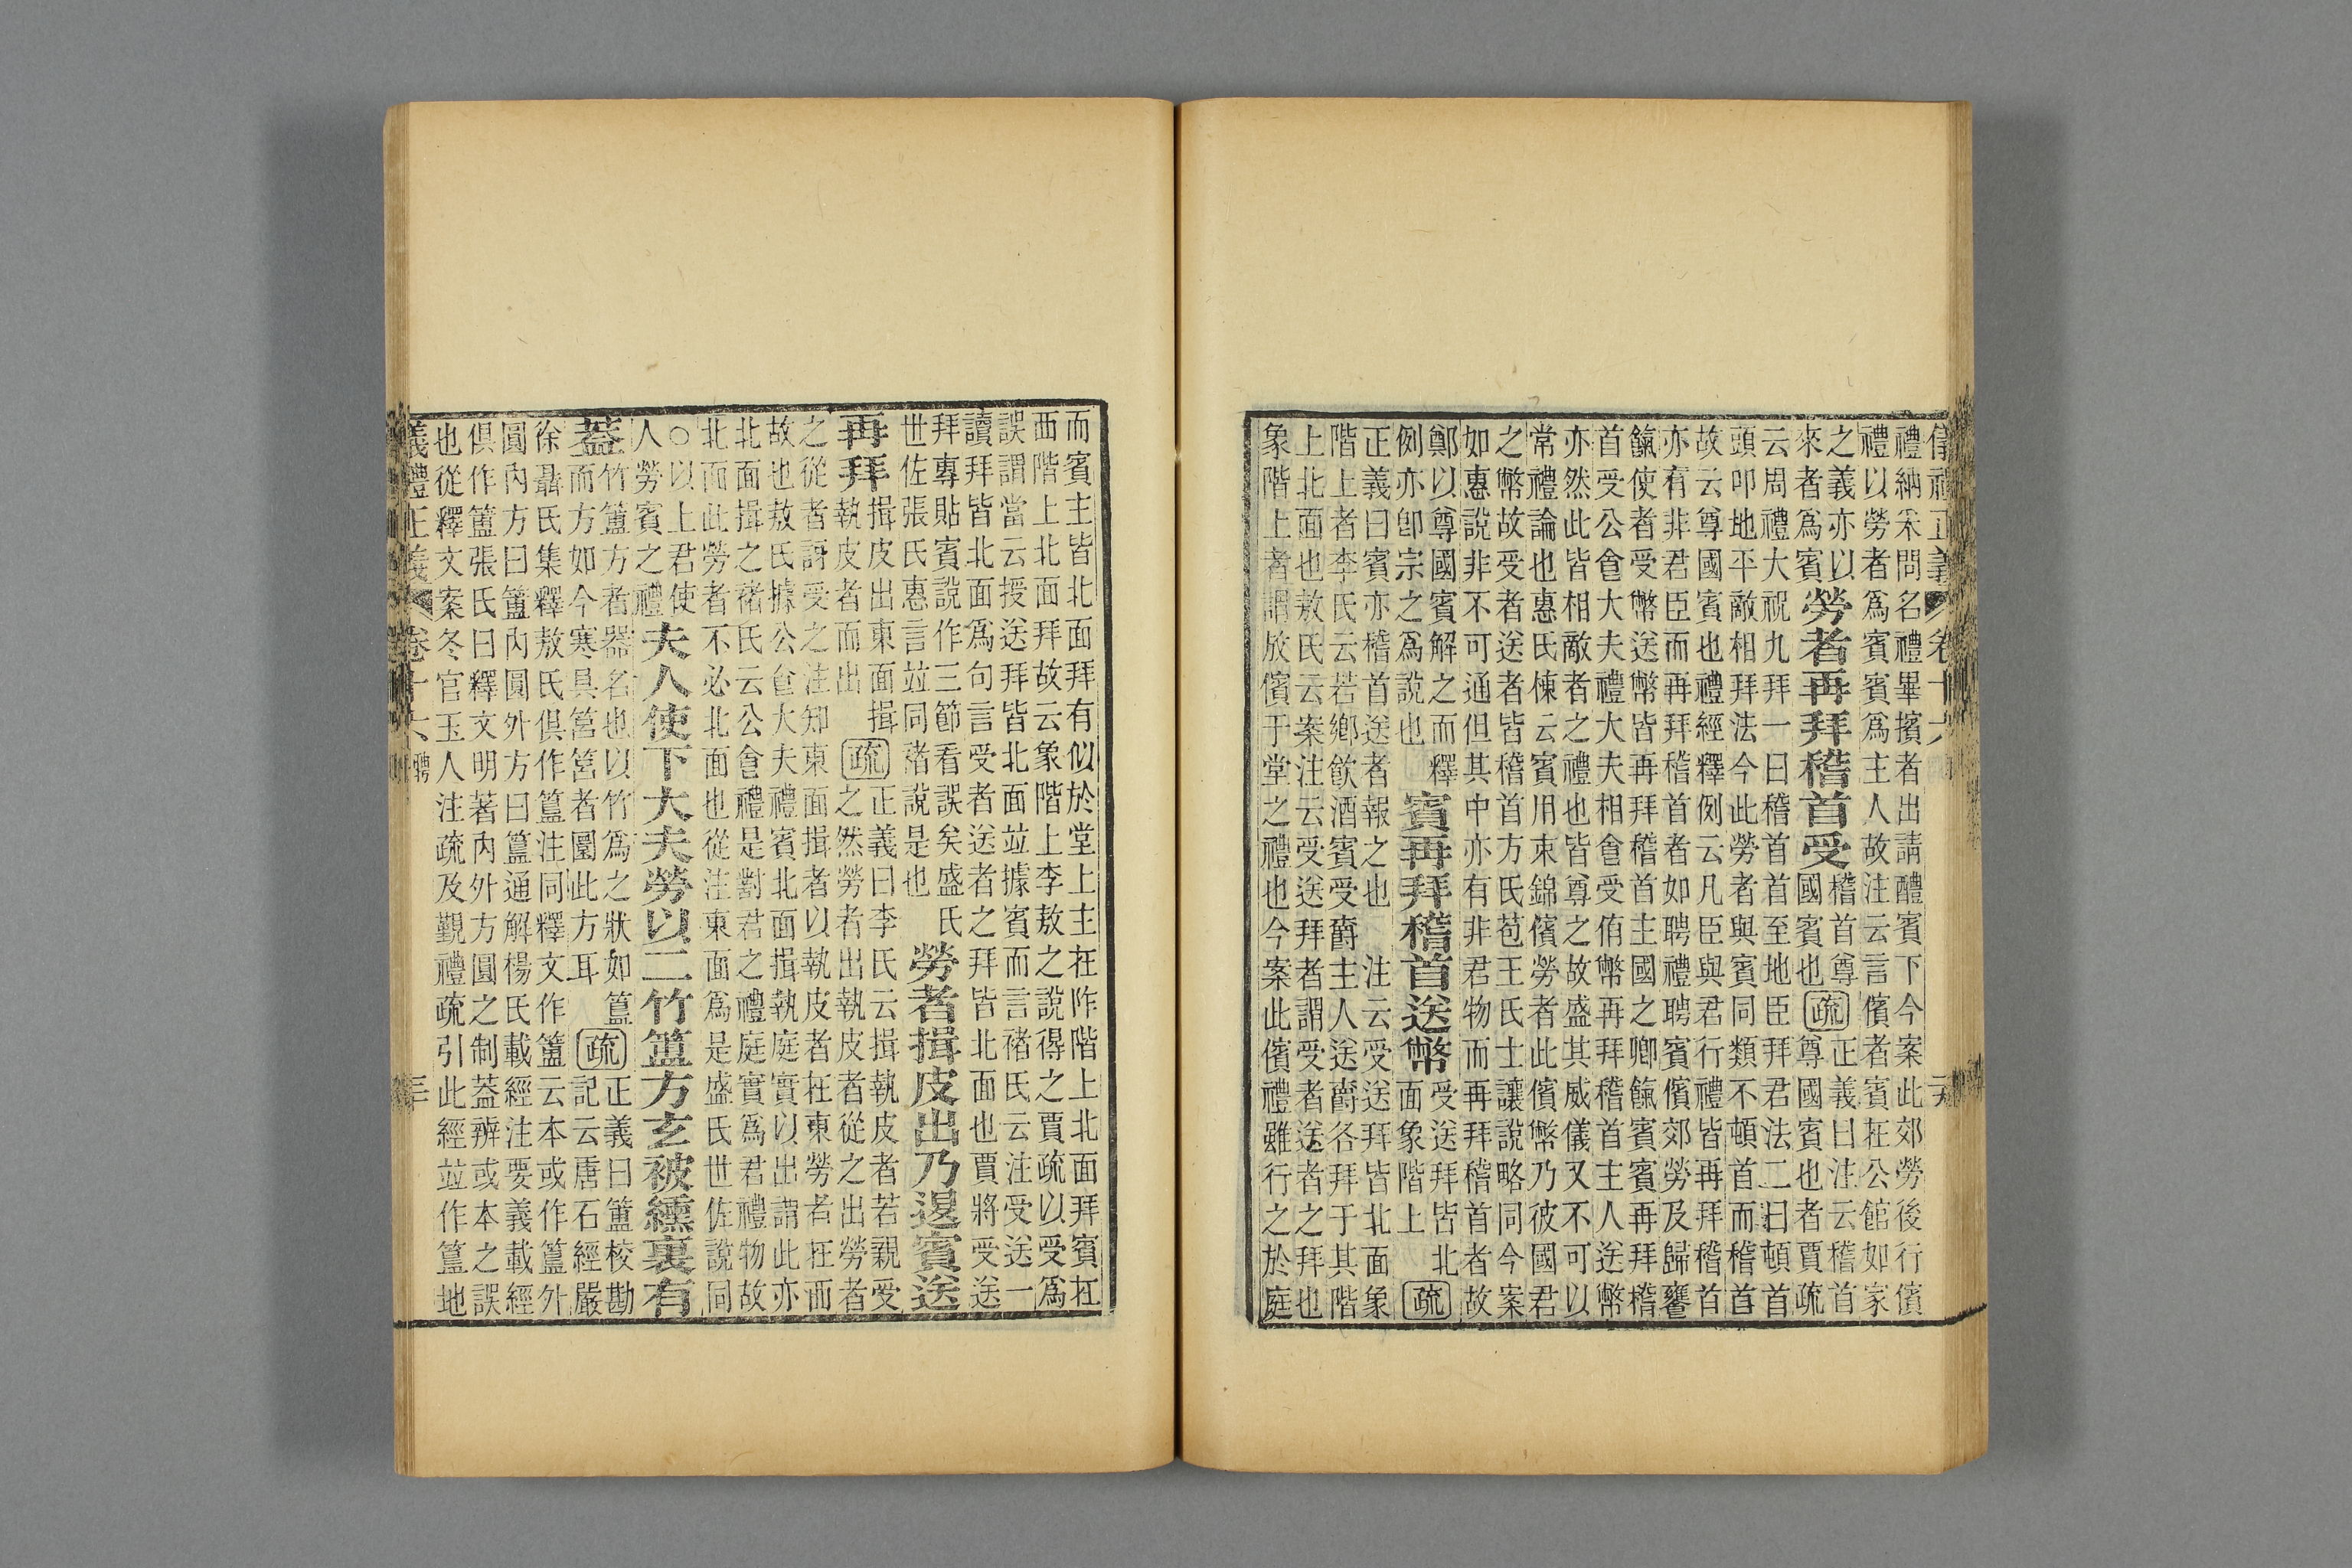 儀禮正義 卷十六
禮納采問名禮畢擯者出請醴賓下今案此郊勞後行儐
禮以勞者爲賓賓爲主人故注云言儐者賓在公館如家
之義亦以
來者爲賓
勞者再拜稽首受
稽首尊
國賓也
疏
正義曰注云稽首
尊國賓也者賈疏
云周禮大祝九拜一曰稽首首至地臣拜君法二曰頓首
頭叩地平敵相拜法今此勞者與賓同類不頓首而稽首
故云尊國賓也禮經釋例云凡臣與君行禮皆再拜稽首
亦有非君臣而再拜稽首者如聘禮聘賓儐郊勞及歸饔
餼使者受幣送幣皆再拜稽首主國之卿餼賓賓再拜稽
首受公食大夫禮大夫相食受侑幣再拜稽首主人送幣
亦然此皆相敵者之禮也皆尊之故盛其威儀又不可以
常禮論也惠氏倲云賓用束錦儐勞者此儐幣乃彼國君
之幣故受者送者皆稽首方氏苞王氏士讓說略同今案
如惠說非不可通但其中亦有非君物而再拜稽首者故
鄭以尊國賓解之而釋
例亦卽宗之爲說也
賓再拜稽首送幣
受送拜皆北
面象階上
疏
正義曰賓亦稽首送者報之也 注云受送拜皆北面象
階上者李氏云若鄉飮酒賓受爵主人送爵各拜于其階
上北面也敖氏云案注云受送拜者謂受者送者之拜也
象階上者謂放儐于堂之禮也今案此儐禮雖行之於庭
而賓主皆北面拜有似於堂上主在阼階上北面拜賓在
西階上北面拜故云象階上李敖之說得之賈疏以受爲
誤謂當云授送拜皆北面竝據賓而言禇氏云注受送一
讀拜皆北面爲句言受者送者之拜皆北面也賈將受送
拜專貼賓說作三節看誤矣盛氏
世佐張氏惠言竝同禇說是也
勞者揖皮出乃退賓送
再拜
揖皮出東面揖
執皮者而出
疏
正義曰李氏云揖執皮者若親受
之然勞者出執皮者從之出勞者
之從者訝受之注知東面揖者以執皮者在東勞者在西
故也敖氏據公食大夫禮賓北面揖執庭實以出謂此亦
北面揖之禇氏云公食禮是對君之禮庭實爲君禮物故
北面此勞者不必北面也從注東面爲是盛氏世佐說同
○以上君使
人勞賓之禮
夫人使下大夫勞以二竹簠方玄被纁裏有
蓋
竹簠方者器名也以竹爲之狀如簋
而方如今寒具筥筥者圜此方耳
疏
正義曰簠校勘
記云唐石經嚴
徐聶氏集釋敖氏俱作簋注同釋文作簠云本或作簋外
圓內方曰簠內圓外方曰簋通解楊氏載經注要義載經
俱作簠張氏曰釋文明著內外方圓之制蓋辨或本之誤
也從釋文案冬官玉人注疏及覲禮疏引此經竝作簋地
儀禮正義 卷十六 聘